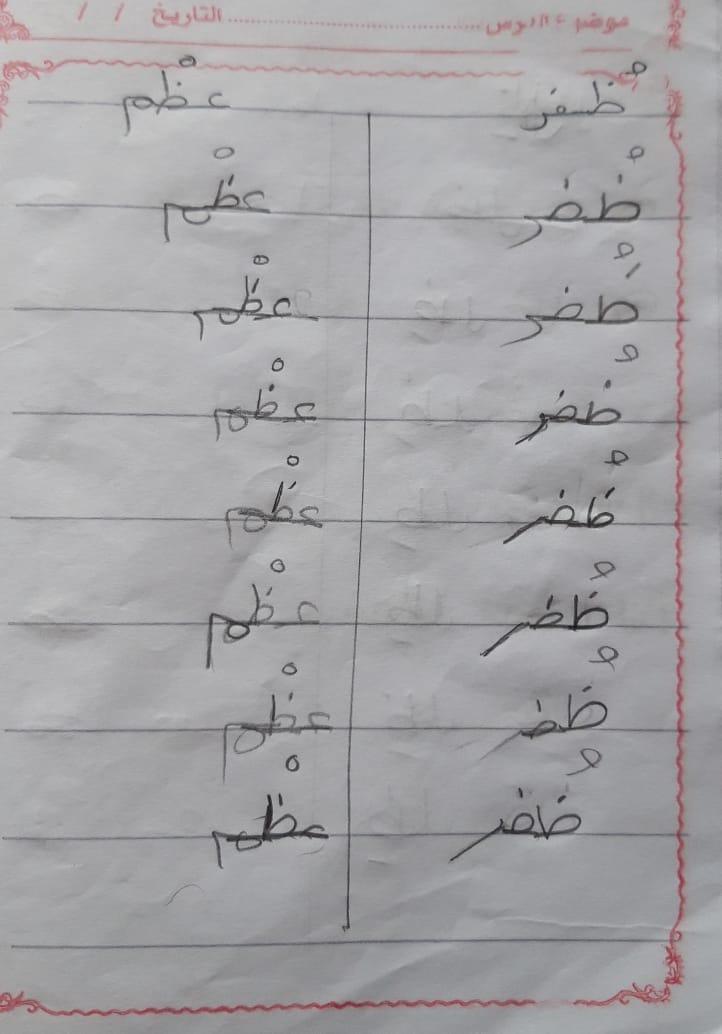 موضوع الدرس ........................ التاريخ / /
ظُفر عظْم
ظُفر عظْم
ظُفر عظْم
ظُفر عظْم
ظُفر عظْم
ظُفر عظْم
ظُفر عظْم
ظُفر عظْم